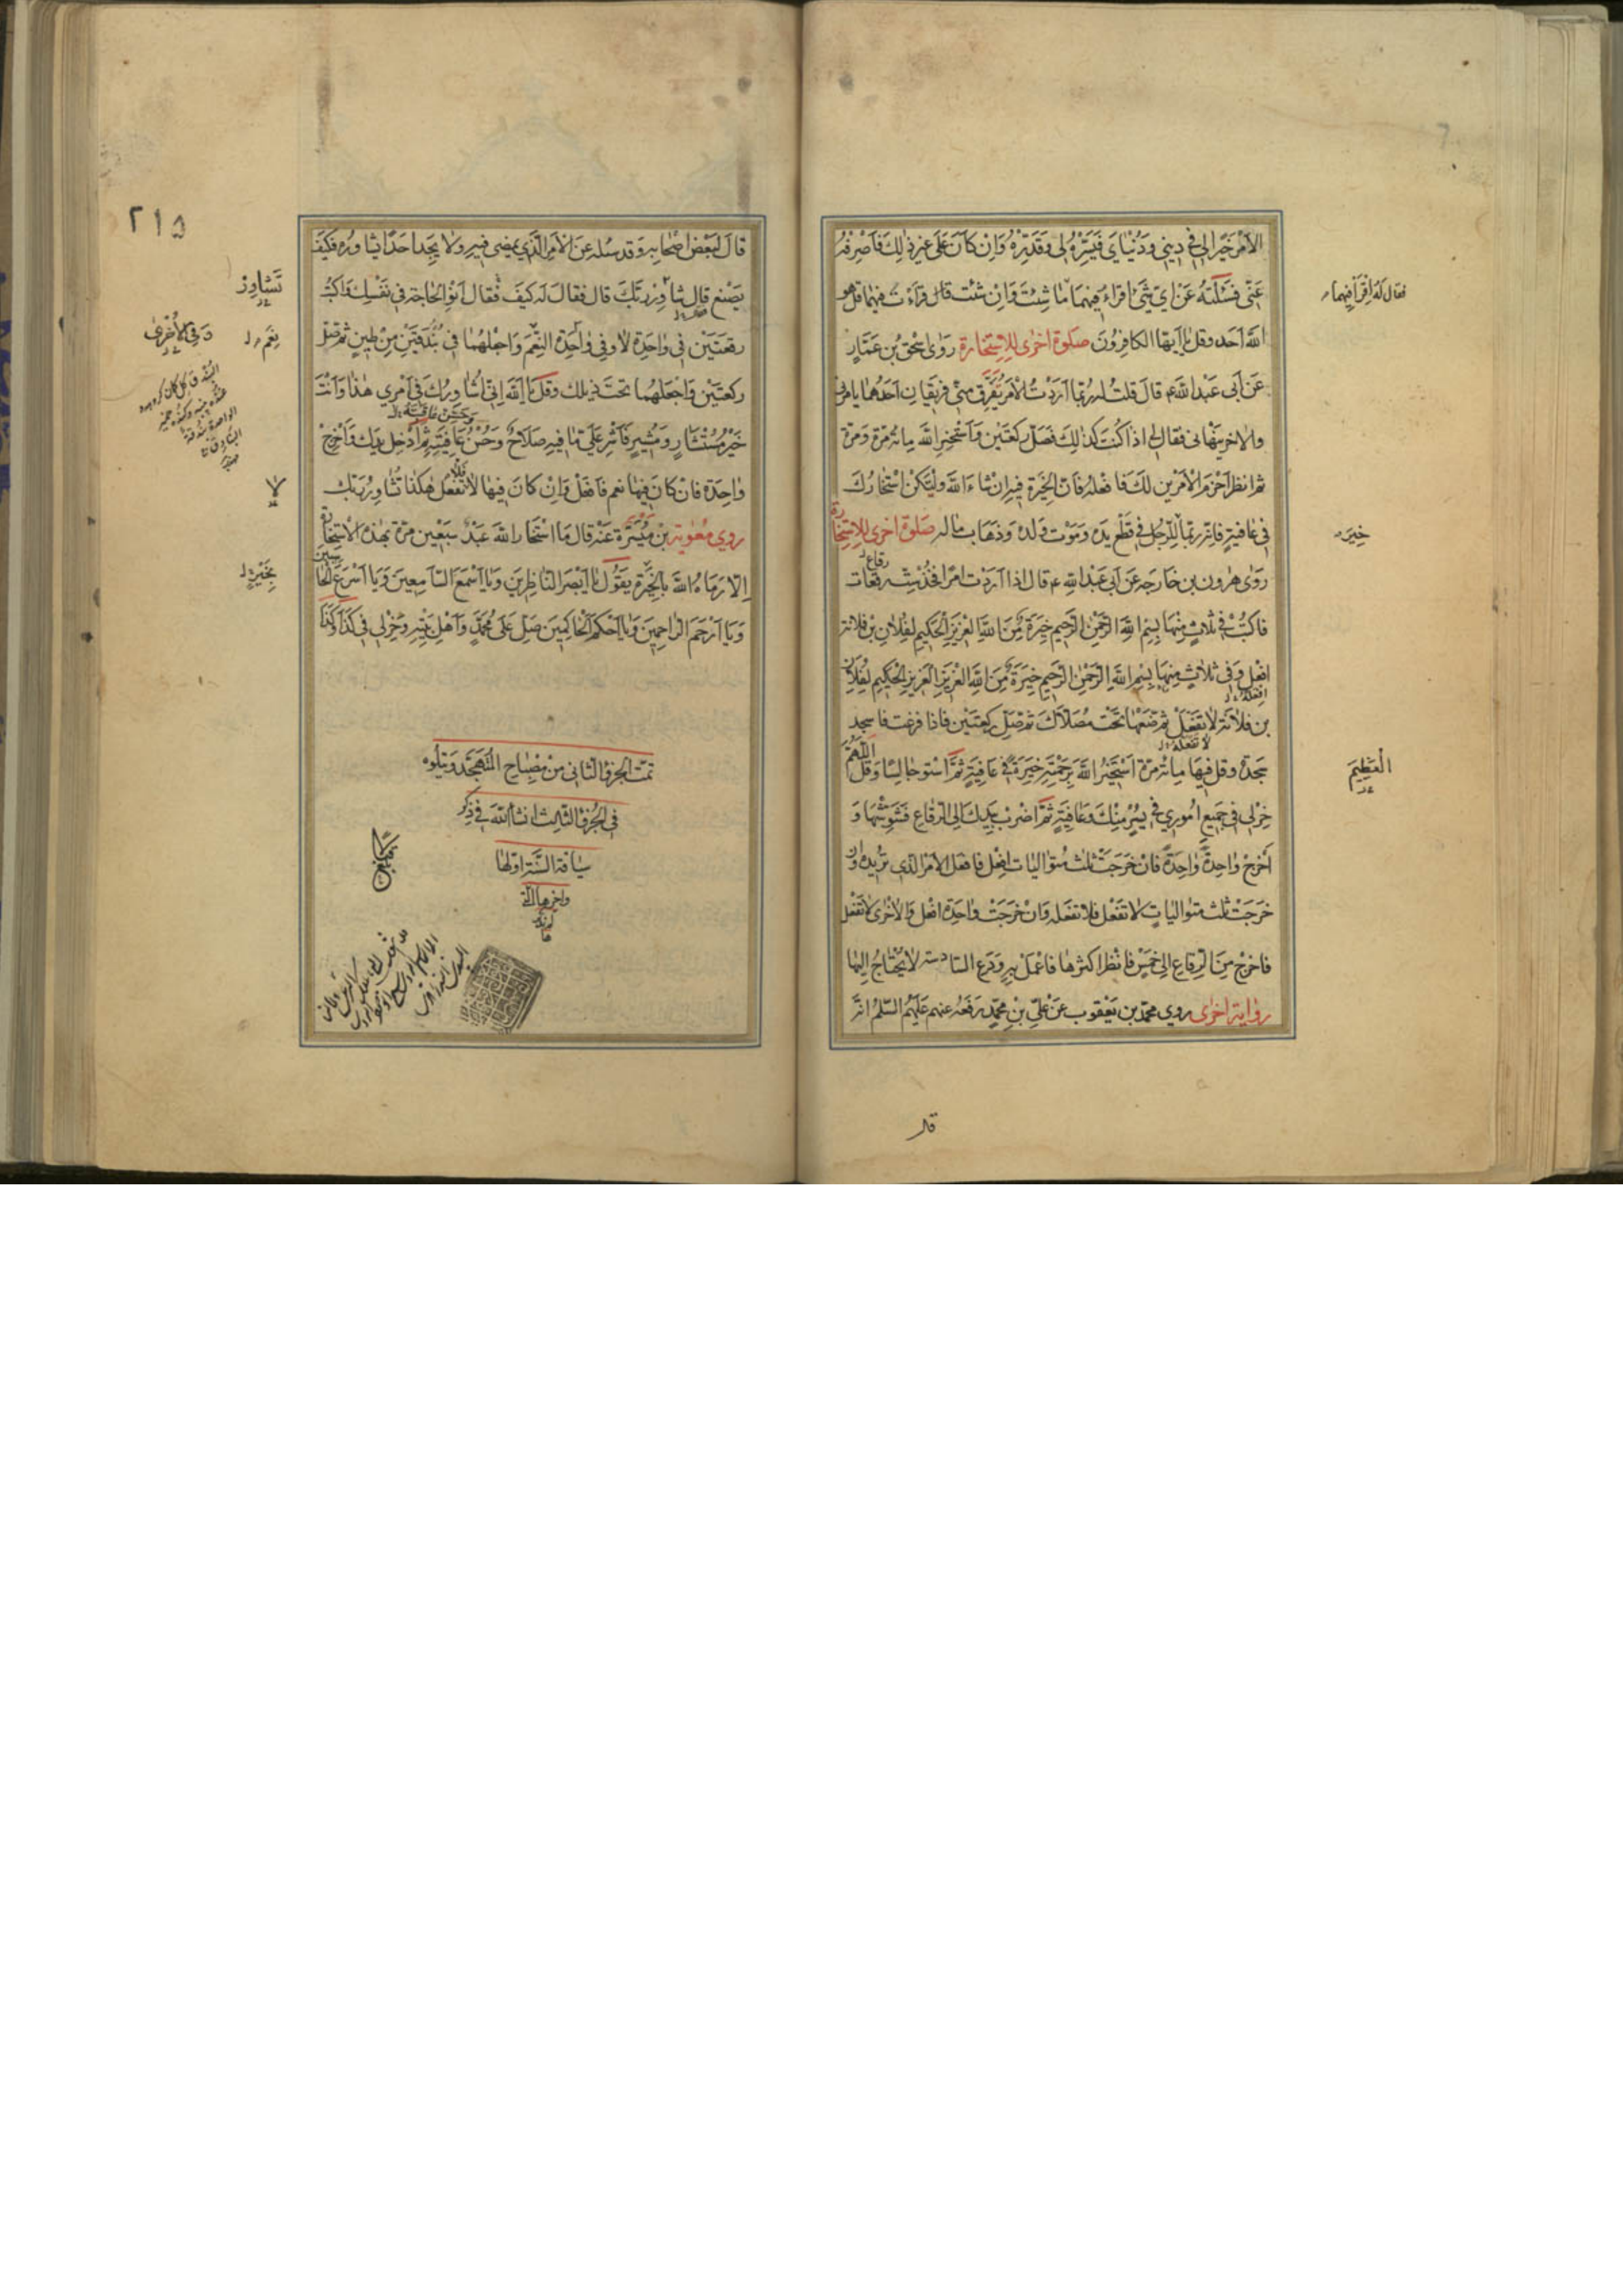 الأَمْرُ خَيْرًا لِي فِي دِينِي وَدُنْيَايَ فَيَسِّرْهُ لِي وَقَدِّرْهُ وَإِنْ كَانَ عَلَى غَيْرِ ذٰلِكَ فَاصْرِفْهُ
عَنِّي فَسَئَلْتُهُ عَنْ أَيِّ شَيْءٍ أَقْرَاءُ فِيهِمَا مَا شِئْتَ وَإِنْ شِئْتَ قَالَ قَرَأْتَ فِيهِمَا قُلْ هُوَ
فقال له اقرأ فيهما
اللّٰهُ أَحَد وقُلْ يَا أَيُّهَا الكَافِرُونَ صَلوٰة أُخْرَى لِلاِسْتِخَارَة رَوَى إِسْحٰق بْن عَمَّارٍ
عَنْ أَبِي عَبْدِ اللّٰهِ ع قَالَ قُلْتُ لَهُ رُبَّمَا أَرَدْتُ الْأَمْرَ تَفَرَّقَ مِنِّي فَرِيقَانِ أَحَدُهُمَا يَأْمُرُنِي
وَالآخَرُ يَنْهَانِي فَقَالَ لِي اذا كُنْتَ كَذٰلِكَ فَصَلِّ رَكْعَتَيْنِ وَاسْتَخِرِ اللّٰهَ مِائَةَ مَرَّة وَمَرَّة
ثُمَّ انْظُرْ أَحْزَمَ الْأَمْرَيْنِ لَكَ فَافْعَلْهُ فَإِنَّ الْخِيَرَةَ فِيهِ إِنْ شَاءَ اللّٰه وَلْتَكُنْ اسْتِخَارَتُكَ
فِي عَافِيَةٍ فَإِنَّهُ رُبَّمَا خُيِّرَ لِلرَّجُلِ فِي قَطْعِ يَدِهِ وَمَوْتِ وَلَدِهِ وَذَهَابِ مَالِهِ صَلوٰة أُخْرَى لِلاِسْتِخَارة
خِيَرَة
رَوَى هٰرُون بن خَارِجَه عَنْ أَبِي عَبْدِ اللّٰهِ ع قَالَ إِذَا أَرَدْتَ أَمْرًا فَخُذْ سِتَّ رقعات
رقاع
فَاكْتُبْ فِي ثَلَاثٍ مِنْهَا بِسْمِ اللّٰهِ الرَّحْمٰنِ الرَّحِيمِ خِيَرَةٌ مِنَ اللّٰهِ الْعَزِيزِ الْحَكِيمِ لِفُلَانِ بْنِ فُلَانَة
افْعَلْ وَفِي ثَلَاثٍ مِنْهَا بِسْمِ اللّٰهِ الرَّحْمٰنِ الرَّحِيمِ خِيَرَةٌ مِنَ اللّٰهِ الْعَزِيزِ الْعَزِيزِ الْحَكِيمِ لِفُلَانِ
افعله
بْنِ فُلَانَة لَا تَفْعَلْ ثُمَّ ضَعْهَا تَحْتَ مُصَلَّاكَ ثُمَّ صَلِّ رَكْعَتَيْنِ فَإِذَا فَرَغْتَ فَاسْجُدْ
لا تفعله
سَجْدَةً وَقُلْ فِيهَا مِائَةَ مَرَّة أَسْتَخِيرُ اللّٰهَ بِرَحْمَتِهِ خِيَرَةً فِي عَافِيَةٍ ثُمَّ اسْتَوِ جَالِسًا وَقُلِ اللّٰهُمَّ
العَظِيمَ
خِرْ لِي فِي جَمِيعِ أُمُورِي فِي يُسْرٍ مِنْكَ وَعَافِيَةٍ ثُمَّ اضْرِبْ بِيَدِكَ إِلَى الرِّقَاعِ فَشَوِّشْهَا وَ
أَخْرِجْ وَاحِدَةً وَاحِدَةً فَإِنْ خَرَجَتْ ثَلٰث مُتَوَالِيَات افْعَلْ فَافْعَلِ الأَمْرَ الَّذِي تُرِيدُه وَإِنْ
خَرَجَتْ ثَلٰث مُتَوَالِيَاتٍ لَا تَفْعَلْ فَلَا تَفْعَلْه وَإِنْ خَرَجَتْ وَاحِدَة افْعَلْ وَالْأُخْرَى لَا تَفْعَلْ
فَاخْرِجْ مِنَ الرِّقَاعِ إِلَى خَمْسٍ فَانْظُرْ أَكْثَرَهَا فَاعْمَلْ بِهِ وَدَعِ السَّادِسَة لَا يُحْتَاجُ إِلَيْهَا
رِوَايَة أُخْرَى رَوَى مُحَمَّد بْن يَعْقُوب عَنْ عَلِيِّ بْنِ مُحَمَّدٍ رَفَعَهُ عَنْهُمْ عَلَيْهِمُ السَّلَمُ أَنَّهُ
قال
٢١٥
قَالَ لِبَعْضِ أَصْحَابِهِ وَقَد سُئِلَ عَنِ الْأَمْرِ الَّذِي يَمْضِي فِيهِ وَلَا يَجِدُ أَحَدًا يُشَاوِرُهُ فَكَيْفَ
يَصْنَع قَالَ شَاوِرْ رَبَّكَ قَالَ فَقَالَ لَه كَيْفَ فَقَالَ انْوِ الْحَاجَةَ فِي نَفْسِكَ وَاكْتُبْ
تَشَاوَرْ
رُقْعَتَيْنِ فِي وَاحِدَةٍ لَا وَفِي وَاحِدَة النَّعَمَ وَاجْعَلْهُمَا فِي بُنْدُقَتَيْنِ مِنْ طِينٍ ثُمَّ صَلِّ
نَعَم
وَفِي الأُخْرَى
رَكْعَتَيْنِ وَاجْعَلْهُمَا تَحْتَ ذَيْلِكَ وَقُلْ يَا اللّٰه إِنِّي أُشَاوِرُكَ فِي أَمْرِي هٰذَا وَأَنْتَ
خَيْرُ مُسْتَشَارٍ وَمُشِيرٍ فَأَشِرْ عَلَيَّ مَا فِيهِ صَلَاحٌ وَحُسْنُ عَافِيَةٍ ثُمَّ أَدْخِلْ يَدَكَ وَأَخْرِجْ
وَاحِدَة فَإِنْ كَانَ فِيهَا نَعَم فَافْعَلْ وَإِنْ كَانَ فِيهَا لَا تَفْعَلْ هٰكَذَا تُشَاوِرُ رَبَّكَ
فلا
لا
رَوَى مُعٰوِيَة بْن مَيْسَرَة عَنْهُ قَالَ مَا اسْتَخَارَ اللّٰهَ عَبْدٌ سَبْعِينَ مَرَّةً بِهٰذِهِ الاِسْتِخَارة
إِلَّا رَمَاهُ اللّٰه بِالْخِيَرَةِ يَقُولُ يَا أَبْصَرَ النَّاظِرِينَ وَيَا أَسْمَعَ السَّامِعِينَ وَيَا أَسْرَعَ الْحَاسبين
وَيَا أَرْحَمَ الرَّاحِمِينَ وَيَا أَحْكَمَ الْحَاكِمِينَ صَلِّ عَلَى مُحَمَّدٍ وَأَهْلِ بَيْتِهِ وَخِرْ لِي فِي كَذَا وَكَذَا
تَمَّتْ الْجُزْوُ الثَّانِي مِنْ مِصْبَاحِ الْمُتَهَجِّدِ وَيَتْلُوهُ
فِي الْجُزْوِ الثَّالِث إن شاء اللّٰه فِي ذِكْرِ
سِيَاقَة السَّنَة أَوَّلِهَا
وآخرها